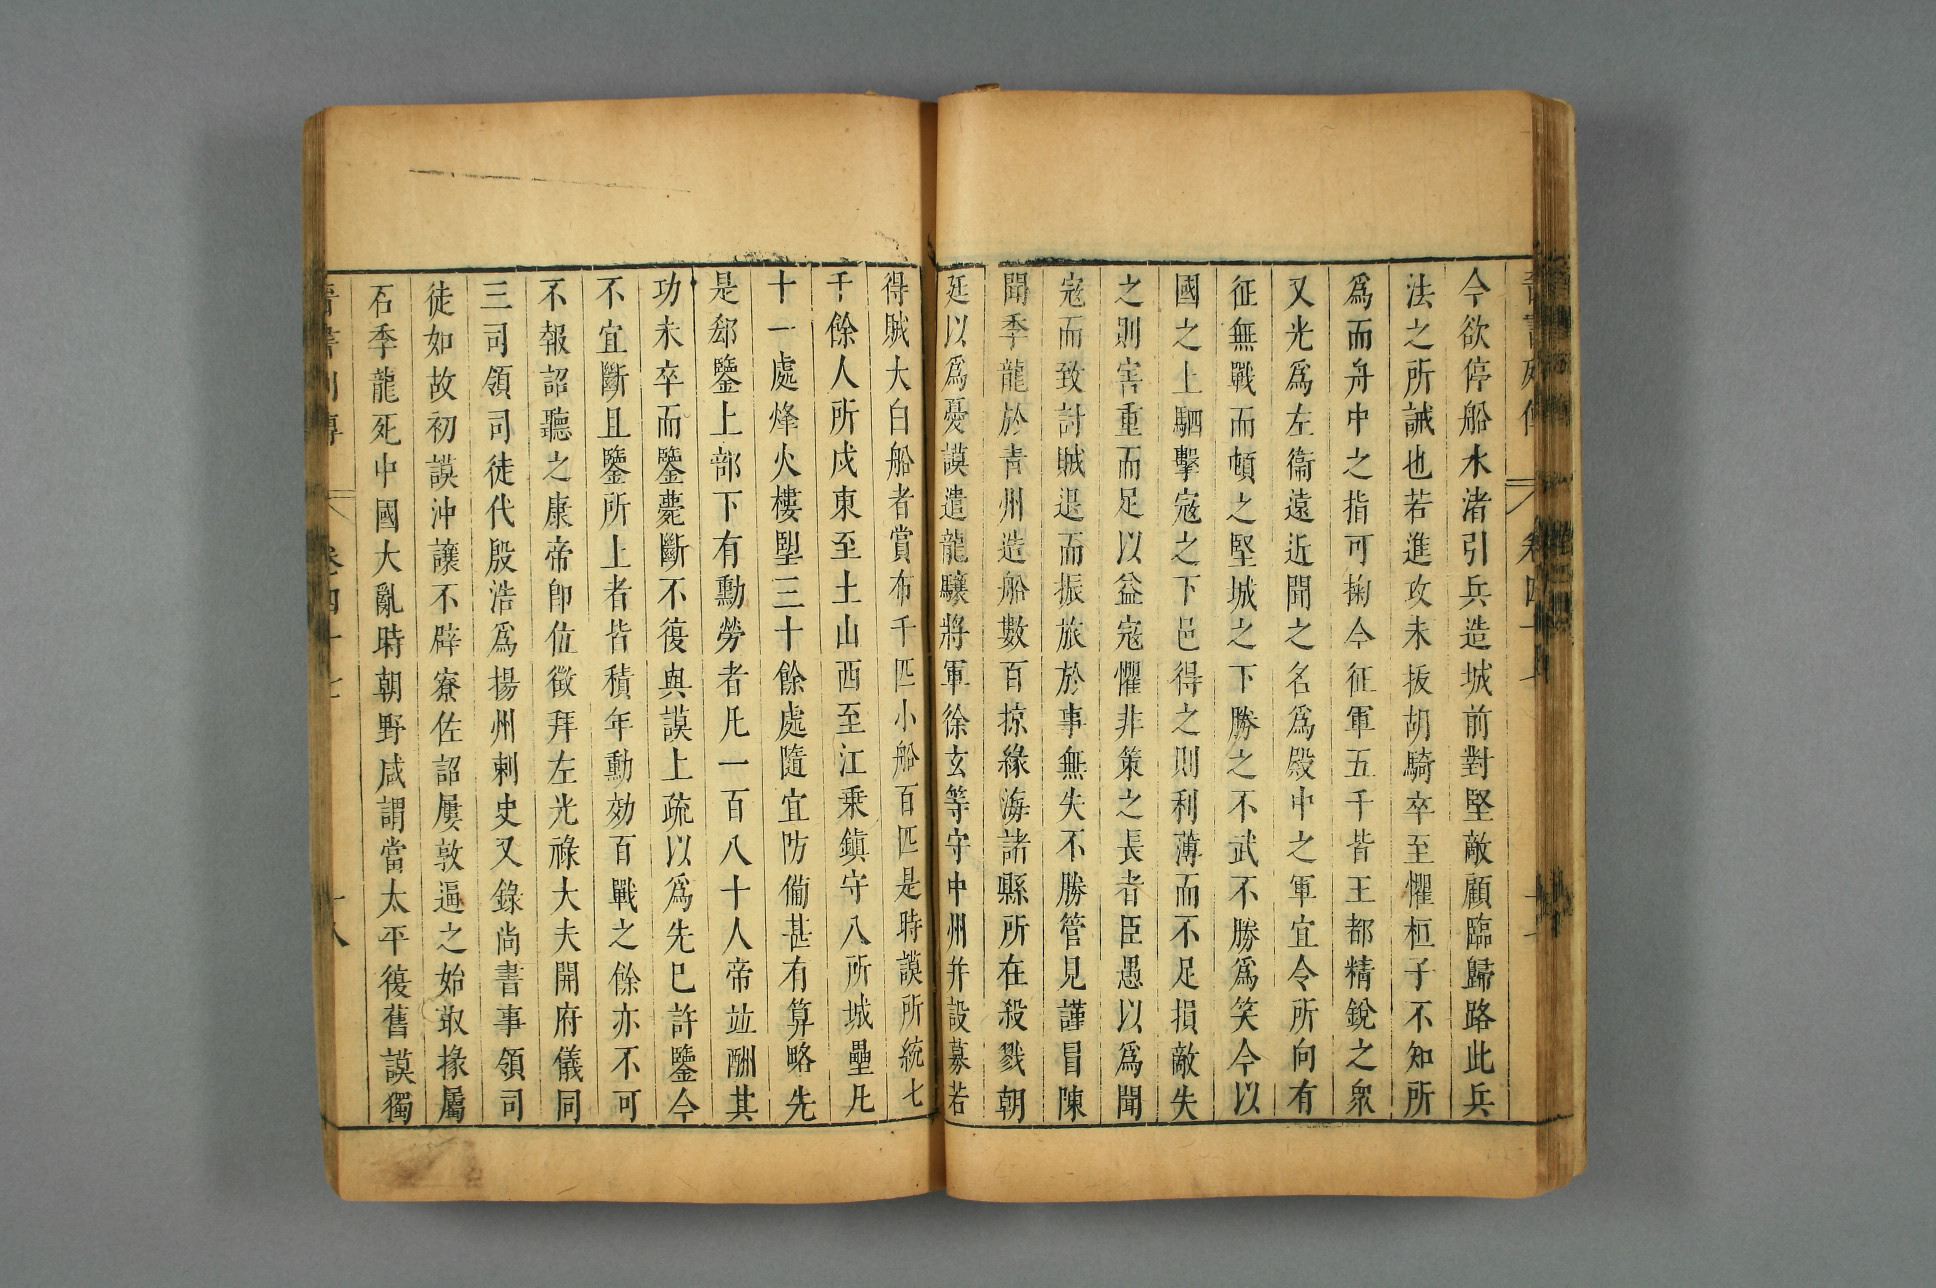 今欲停船水渚引兵造城前對堅敵顧臨歸路此兵
法之所誡也若進攻未拔胡騎卒至懼桓子不知所
爲而舟中之指可掬今征軍五千皆王都精銳之衆
又光爲左衞遠近聞之名爲殿中之軍宜令所向有
征無戰而頓之堅城之下勝之不武不勝爲笑今以
國之上駟擊寇之下邑得之則利薄而不足損敵失
之則害重而足以益寇懼非策之長者臣愚以爲聞
寇而致討賊退而振旅於事無失不勝管見謹冒陳
聞季龍於青州造船數百掠緣海諸縣所在殺戮朝
廷以爲憂謨遣龍驤將軍徐玄等守中州并設募若
得賊大白船者賞布千匹小船百匹是時謨所統七
千餘人所戍東至土山西至江乗鎮守八所城壘凡
十一處烽火樓塱三十餘處隨宜防備甚有算略先
是郄鑒上部下有勳勞者凡一百八十人帝竝酬其
功未卒而鑒薨斷不復與謨上疏以爲先已許鑒今
不宜斷且鑒所上者皆積年勳効百戰之餘亦不可
不報詔聽之康帝卽位徵拜左光祿大夫開府儀同
三司領司徒代殷浩爲揚州刺史又錄尚書事領司
徒如故初謨沖讓不辟寮佐詔屢敦逼之始取掾屬
石季龍死中國大亂時朝野咸謂當太平復舊謨獨
卷四十七
十八